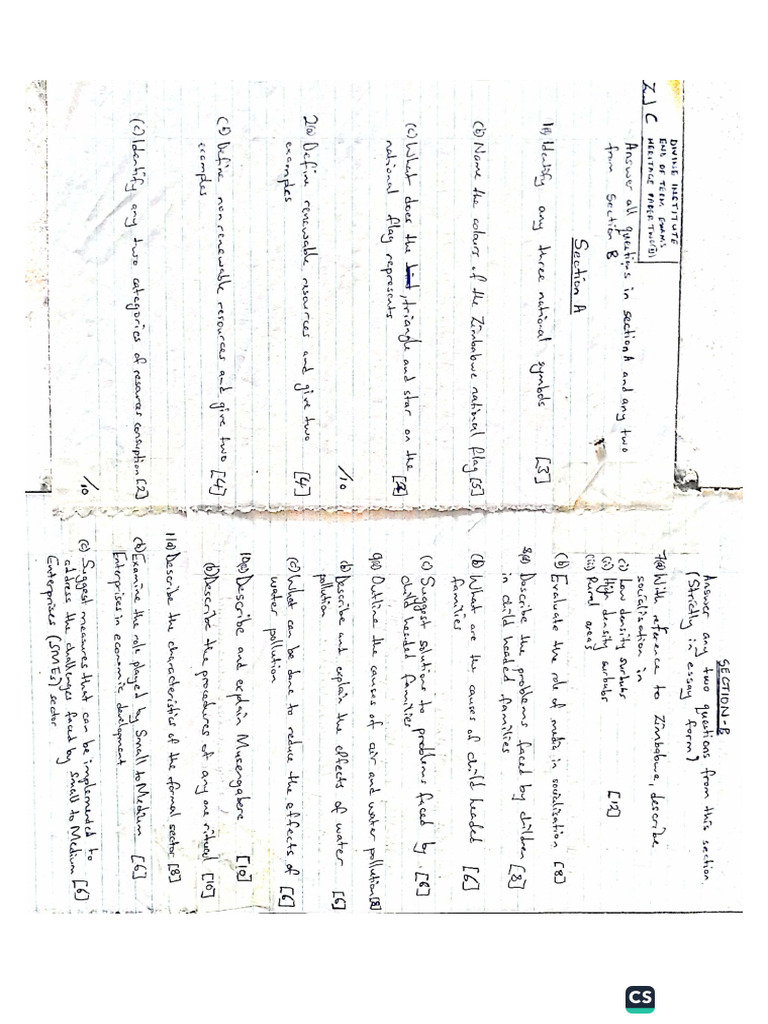 DIVINE INSTITUTE
END OF TERM EXAMS
ZJC HERITAGE PAPER TWO(2)
Answer all questions in section A and any two
from section B
Section A
1(a) Identify any three national symbols [3]
(b) Name the colours of the Zimbabwe national flag [5]
(c) What does the bird, triangle and star on the
national flag represents [2]
/10
2(a) Define renewable resources and give two
examples [4]
(b) Define non renewable resources and give two
examples [4]
(c) Identify any two categories of resources consuption [2]
/10
SECTION-B
Answer any two questions from this section
(Strictly in essay form)
7(a) With reference to Zimbabwe, describe
socialisation in
(i) Low density surburbs
(ii) High density surbubs
(iii) Rural areas [12]
(b) Evaluate the role of media in socialisation [8]
8(a) Describe the problems faced by children
in child headed families [8]
(b) What are the causes of child headed
families [6]
(c) Suggest solutions to problems faced by
child headed families [6]
9(a) Outline the causes of air and water pollution [8]
(b) Describe and explain the effects of water
pollution [6]
(c) What can be done to reduce the effects of
water pollution [6]
10(a) Describe and explain Musengabere [10]
(b) Describe the procedures of any one ritual [10]
11(a) Describe the characteristics of the formal sector [8]
(b) Examine the role played by Small to Medium
Enterprises in economic development [6]
(c) Suggest measures that can be implemented to
address the challenges faced by small to Medium
Enterprises (SMEs) sector [6]
CS